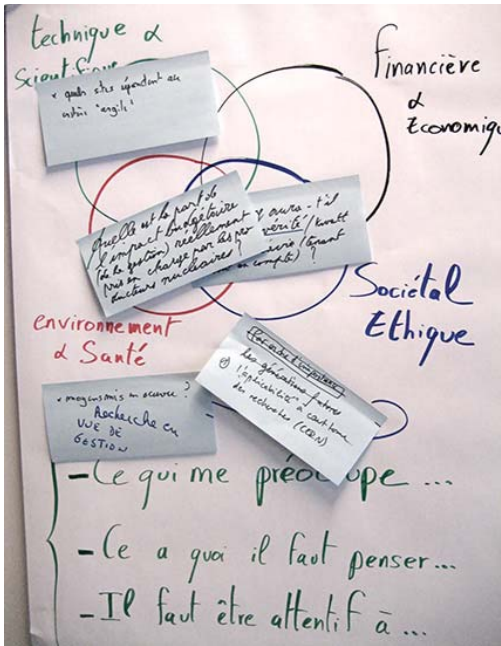 technique &
Scientifique
financière
&
Economique
• quels sites répondent au
critère "argile"
Quelle est la part de
l'impact budgétaire
(de la gestion) réellement
pris en charge par les pro
ducteurs nucléaires ?
aura-t'il
vérité/kwatt
/tenant
compte) ?
Sociétal
Ethique
environnement
& Santé
(Par ordre d'importance)
Les générations futures
l'applicabilité à court terme
des recherches (CERN)
• moyens mis en oeuvre ?
Recherche en
VUE DE
GESTION
- Ce qui me préoccupe ...
- Ce a quoi il faut penser...
- Il faut être attentif à ...